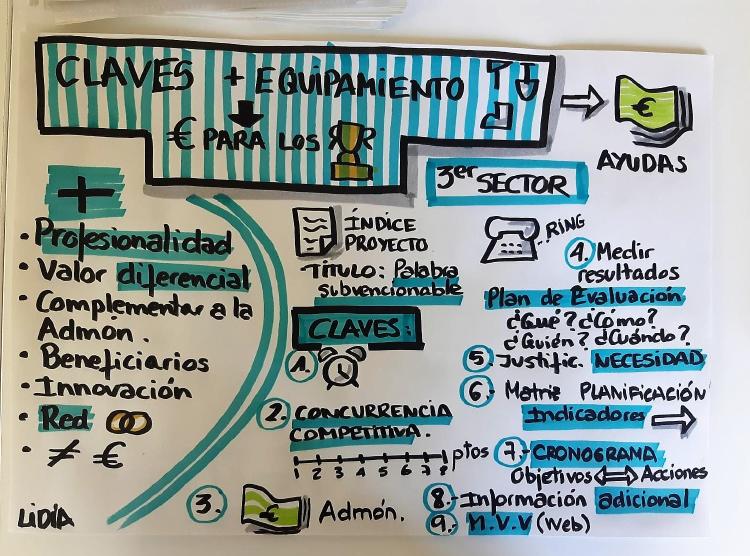 CLAVES + EQUIPAMIENTO
€ PARA LOS
€
AYUDAS
3er SECTOR
+
• Profesionalidad
• Valor diferencial
• Complementar a la
Admon.
• Beneficiarios
• Innovación
• Red
• ≠ €
LiDiA
ÍNDICE
PROYECTO
TÍTULO: Palabra
subvencionable
CLAVES:
1.
2. CONCURRENCIA
COMPETITIVA.
1 2 3 4 5 6 7 8 ptos
3. € Admón.
RING
4. Medir
resultados
Plan de Evaluación
¿Qué? ¿Cómo?
¿Quién? ¿Cuándo?
5. Justific. NECESIDAD
6.- Matriz PLANIFICACIÓN
Indicadores
7.- CRONOGRAMA
Objetivos ⟺ Acciones
8.- Información adicional
9.- M.V.V (Web)